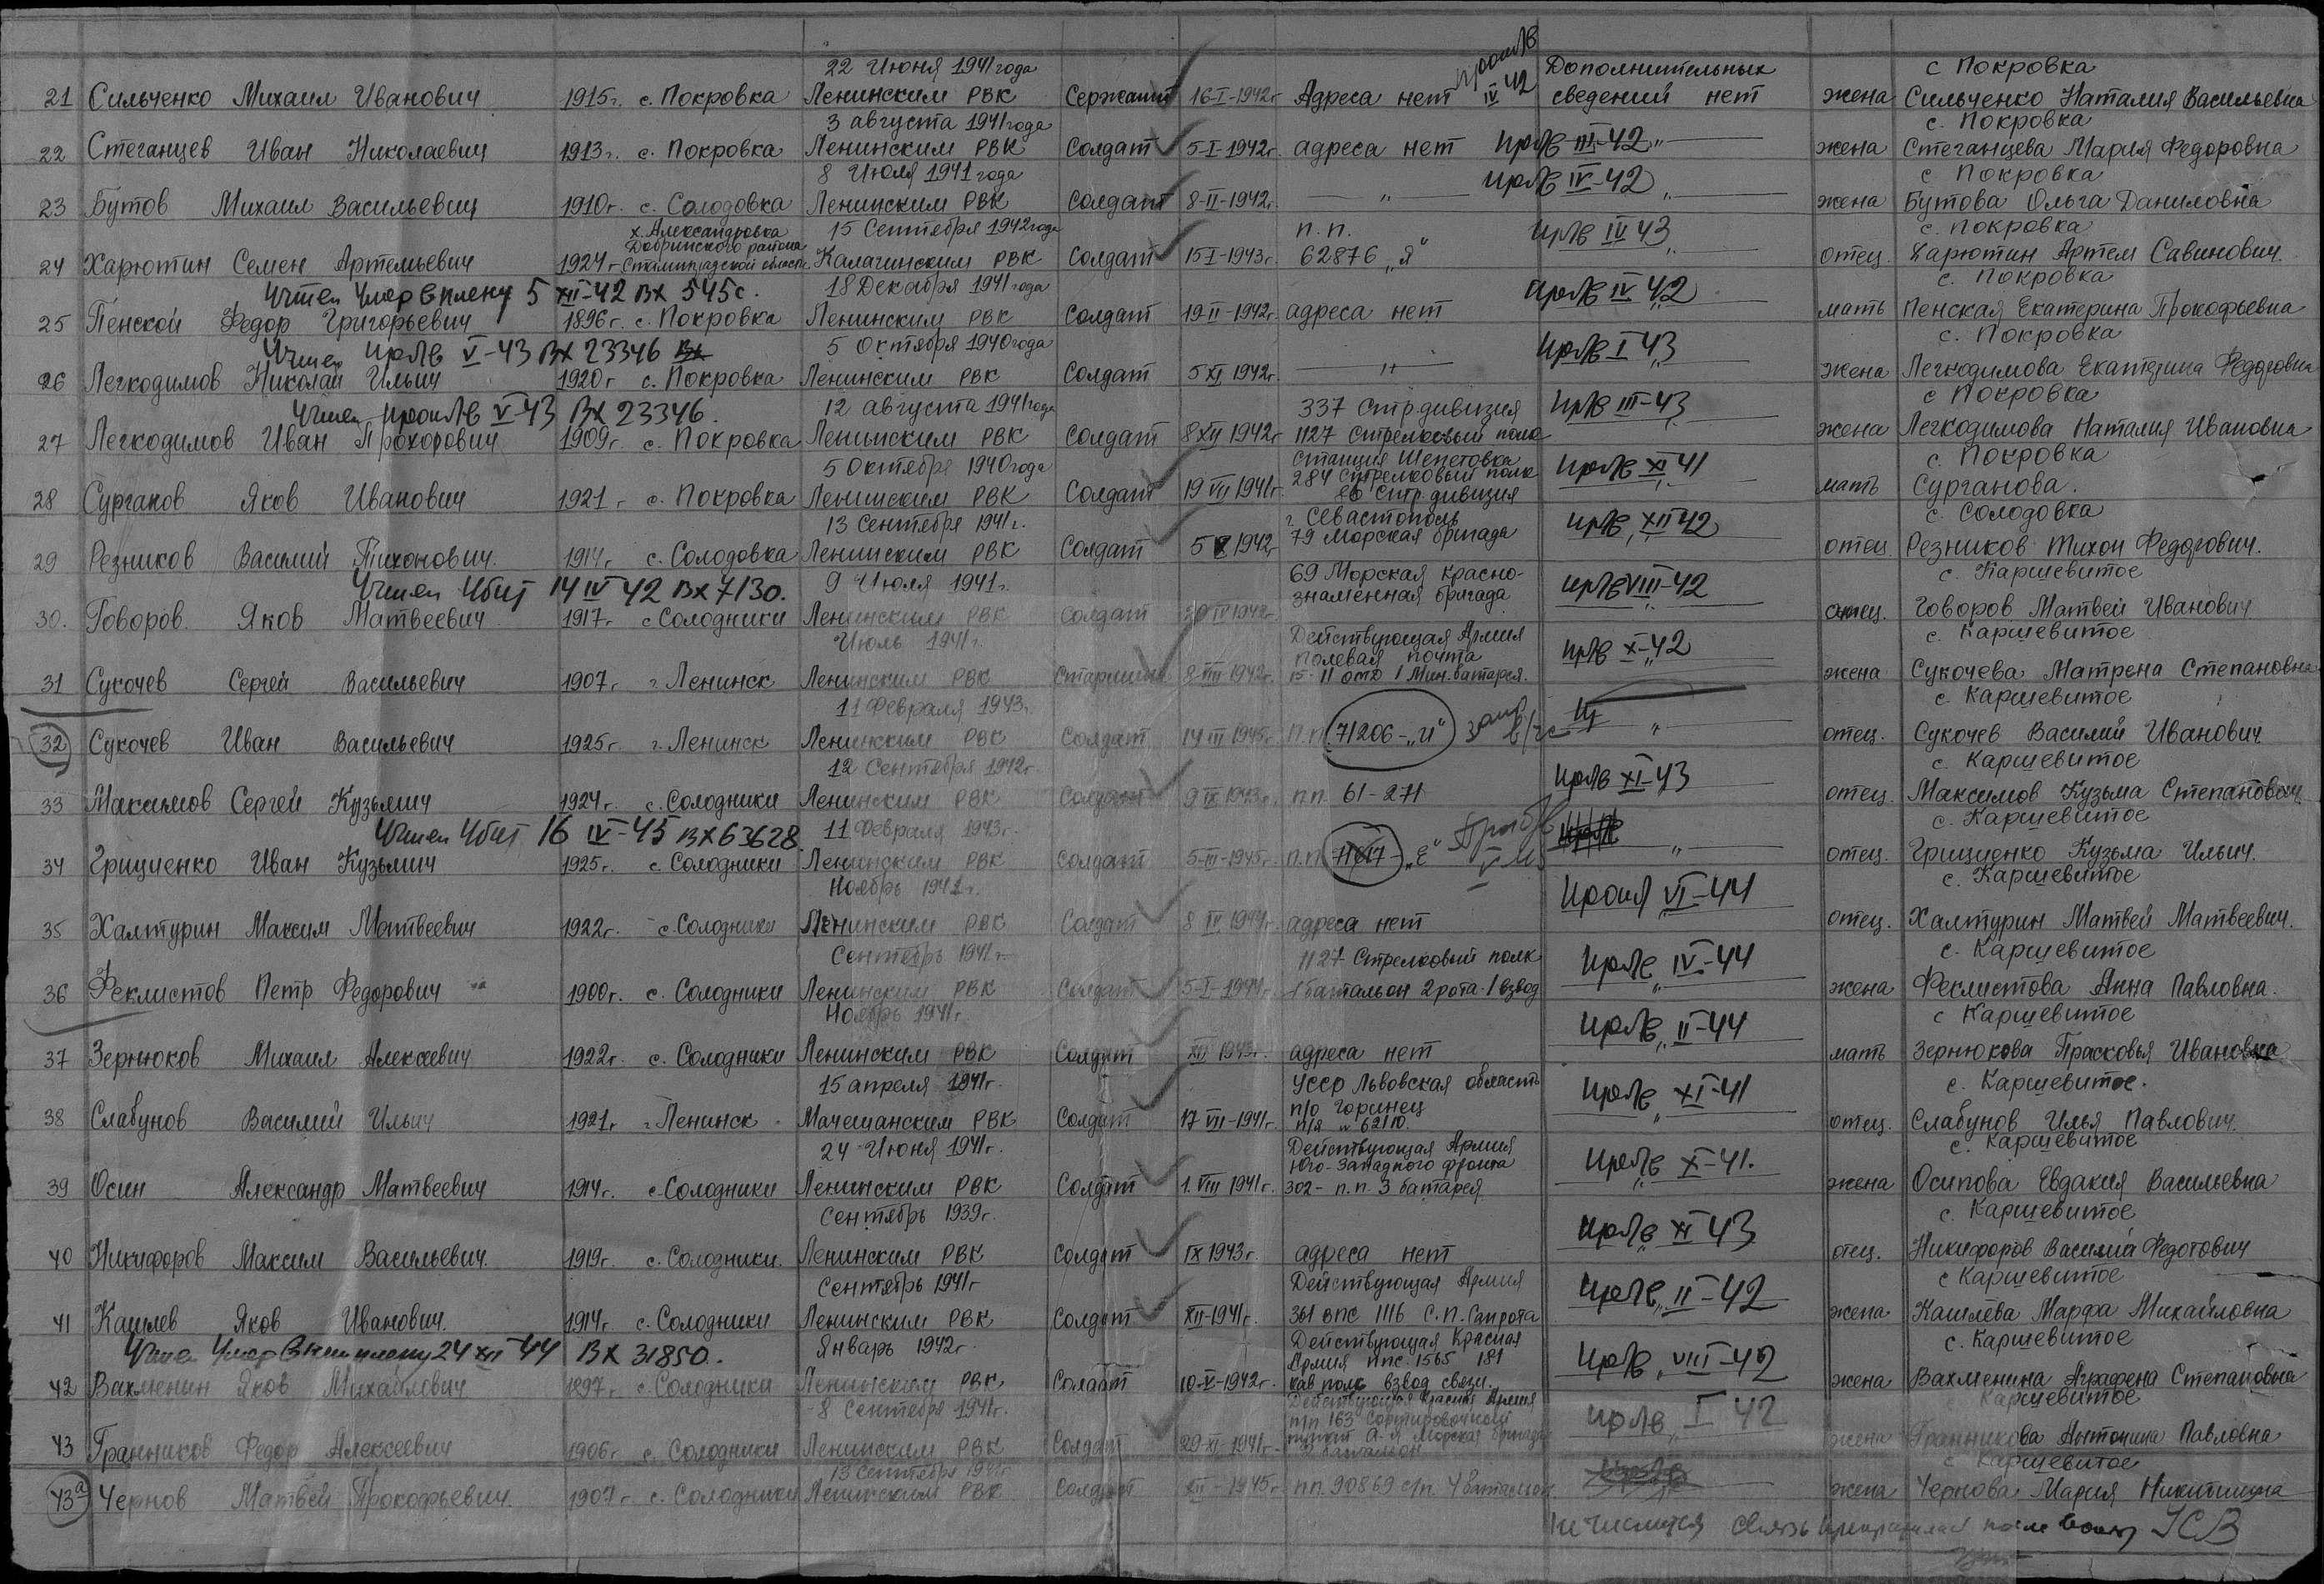 22 Июня 1941 года Дополнительных с Покровка
21 Сильченко Михаил Иванович 1915г. с. Покровка Ленинским РВК Сержант 16-I-1942г Адреса нет IV 42 сведений нет жена Сильченко Наталия Васильевна
3 августа 1941 года с. Покровка
22 Стеганцев Иван Николаевич 1913г. с. Покровка Ленинским РВК Солдат 5-I-1942г. адреса нет III-42 „ жена Стеганцева Мария Федоровна
8 Июля 1941 года с Покровка
23 Бутов Михаил Васильевич 1910г. с. Солодовка Ленинским РВК Солдат 8-II-1942г. „ IV-42 „ жена Бутова Ольга Даниловна
х. Александровка 15 Сентября 1942 года п.п. с. Покровка
Добринского района
24 Харютин Семен Артемьевич 1924г Сталинградской области Калачинским РВК Солдат 15-I-1943г. 62876 „Я“ IV 43 „ отец Харютин Артем Савинович.
Учтен Умер в плену 5 XII-42 вх 545с. 18 Декабря 1941 года с. Покровка
25 Пенской Федор Григорьевич 1896г. с. Покровка Ленинским РВК Солдат 19-II-1942г. адреса нет IV 42 „ мать Пенская Екатерина Прокофьевна
Учтен пр/в V-43 вх 23346 5 Октября 1940 года с. Покровка
26 Легкодимов Николай Ильич 1920г с. Покровка Ленинским РВК Солдат 5 XI 1942г. „ I 43 „ жена Легкодимова Екатерина Федоровна
Учтен V-43 вх 23346. 12 августа 1941 года 337 Стр.дивизия с Покровка
27 Легкодимов Иван Прохорович 1909г с. Покровка Ленинским РВК Солдат 8 XII 1942г 1127 Стрелковый полк III-43 жена Легкодимова Наталия Ивановна
5 Октября 1940 года Станция Шепетовка с. Покровка
284 Стрелковый полк
28 Сурганов Яков Иванович 1921г с. Покровка Ленинским РВК Солдат 19 VII 1941г. Стр.дивизия XI 41 „ мать Сурганова.
13 Сентября 1941г. г. Севастополь с. Солодовка
29 Резников Василий Тихонович. 1914г. с. Солодовка Ленинским РВК Солдат 5 X 1942г 79 Морская бригада XII 42 отец Резников Тихон Федорович.
Учтен Убит 14 IV 42 вх 7130. 9 Июля 1941г. 69 Морская красно- с. Каршевитое
знаменная бригада
30. Говоров Яков Матвеевич 1917г. с Солодники Ленинским РВК Солдат 20 IV 1942г. VIII-42 „ отец. Говоров Матвей Иванович
Июль 1941г. Действующая Армия с. Каршевитое
полевая почта
31 Сукочев Сергей Васильевич 1907г г. Ленинск Ленинским РВК Старшина 8-VIII-1942г. 1 Мин.батарея. X-42 „ жена Сукочева Матрена Степановна
11 Февраля 1943г. с. Каршевитое
32 Сукочев Иван Васильевич 1925г г. Ленинск Ленинским РВК Солдат 14 III 1945г п.п. 71206-„И“ „ отец. Сукочев Василий Иванович
12 Сентября 1942г. с. Каршевитое
33 Максимов Сергей Кузьмич 1924г. с. Солодники Ленинским РВК Солдат 9 IX 1943г. п.п. 61-271 XI-43 отец Максимов Кузьма Степанович.
Учтен Убит 16 IV-45 вх 63628. 11 Февраля 1943г. с. Каршевитое
34 Гриценко Иван Кузьмич 1925г. с. Солодники Ленинским РВК Солдат 5-III-1945г. п.п. „Е“ „ отец. Гриценко Кузьма Ильич.
Ноябрь 1941г. с. Каршевитое
35 Халтурин Максим Матвеевич 1922г. с. Солодники Ленинским РВК Солдат 8 IV 1944г. адреса нет VI-44 отец. Халтурин Матвей Матвеевич.
Сентябрь 1941г. 1127 Стрелковый полк с. Каршевитое
36 Феклистов Петр Федорович 1900г. с. Солодники Ленинским РВК Солдат 5-I-1944г. 1 батальон 2 рота 1 взвод IV-44 „ жена Феклистова Анна Павловна.
Ноябрь 1941г. с Каршевитое
37 Зернюков Михаил Алексеевич 1922г. с. Солодники Ленинским РВК Солдат XII 1943г. адреса нет II-44 „ мать Зернюкова Прасковья Ивановна
15 апреля 1941г. УССР Львовская область с. Каршевитое.
п/о Горинец
38 Слабунов Василий Ильич 1921г. г. Ленинск Мачешанским РВК Солдат 17 VII-1941г. п/я № 62110. XI-41 „ отец. Слабунов Илья Павлович.
24 Июня 1941г. Действующая Армия с. Каршевитое
Юго-Западного фронта
39 Осин Александр Матвеевич 1914г. с. Солодники Ленинским РВК Солдат 1. VIII 1941г. 302- п.п. 3 батарея X-41. „ жена Осипова Евдакия Васильевна
Сентябрь 1939г. с. Каршевитое
40 Никифоров Максим Васильевич. 1919г. с. Солодники. Ленинским РВК Солдат IX 1943г. адреса нет XI 43 „ отец. Никифоров Василий Федотович
Сентябрь 1941г Действующая Армия с Каршевитое
41 Кашлев Яков Иванович. 1914г. с. Солодники Ленинским РВК Солдат XII-1941г. 361 ппс 1116 С.П. Санрота II-42 „ жена Кашлева Марфа Михайловна
Учтен Умер в плену 24 XII 44 вх 31850. Январь 1942г. Действующая Красная с. Каршевитое
Армия ппс 1565 181
42 Вахменин Яков Михайлович 1897г. с. Солодники Ленинским РВК Солдат 10-X-1942г. кав полк взвод связи. VIII-42 „ жена Вахменина Аграфена Степановна
8 Сентября 1941г. Действующая Красная Армия Каршевитое
п/п 163 Сортировочный
43 Гранников Федор Алексеевич 1906г. с. Солодники Ленинским РВК Солдат 29-XI-1941г. пункт Морская бригада I 42 жена Гранникова Антонина Павловна
13 Сентября 1941г. батальон с Каршевитое
43а Чернов Матвей Прокофьевич. 1907г. с. Солодники Ленинским РВК Солдат XII-1945г. пп. 90869 с/п 4 батальон жена Чернова Мария Никитична
не числится связь после войны